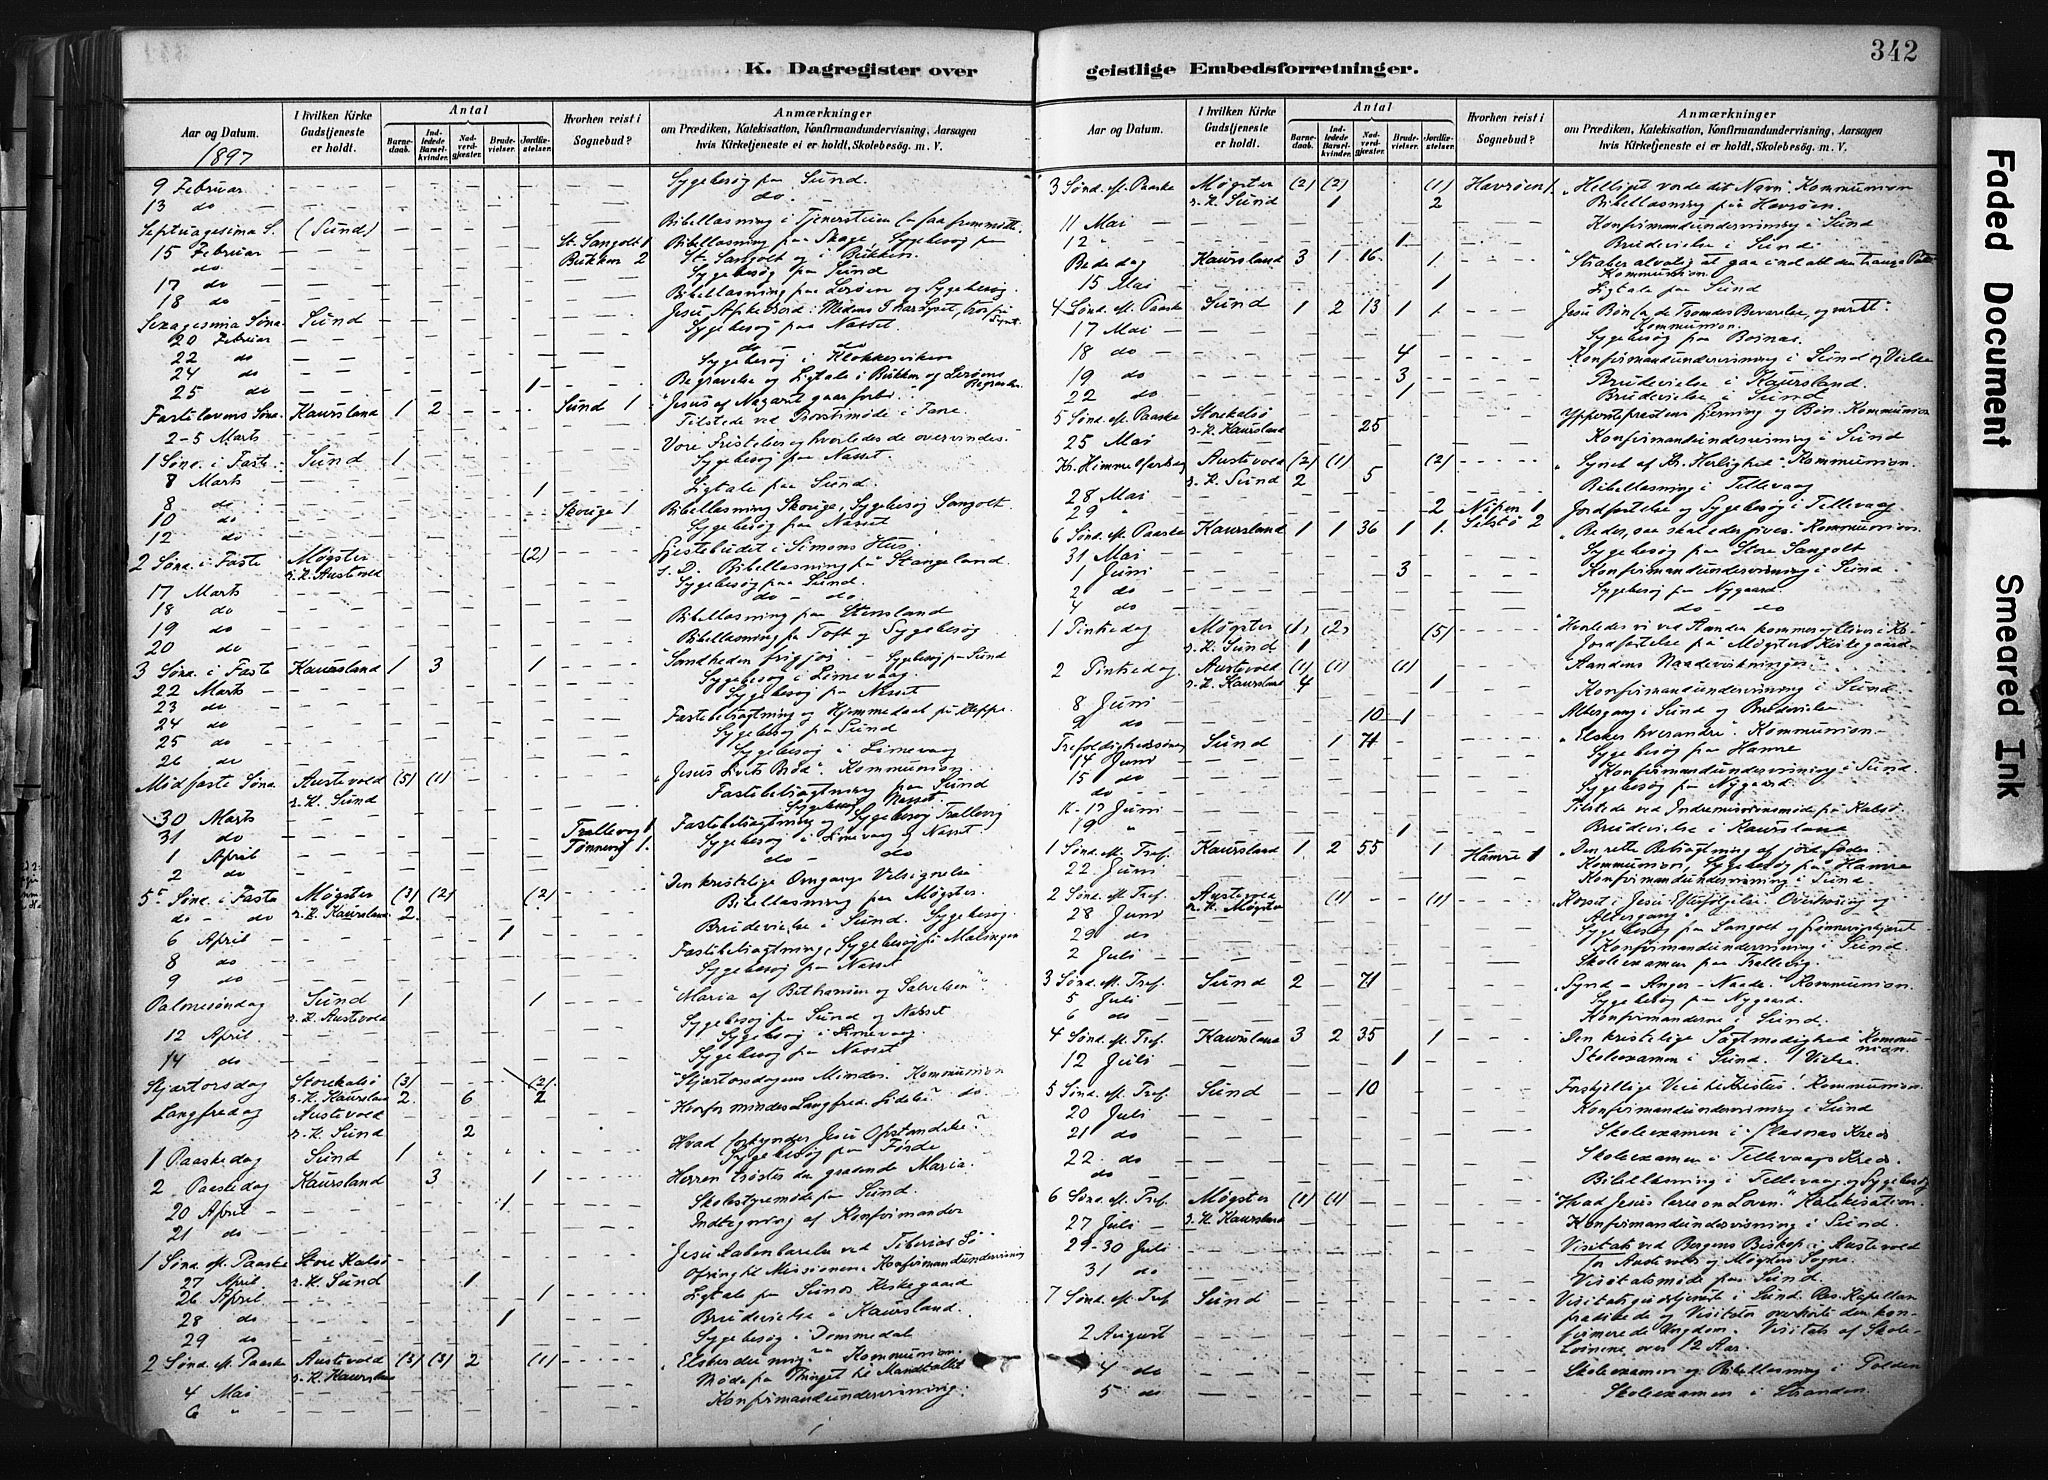 342
K. Dagregister over geistlige Embedsforretninger.
Aar og Datum.
1897
I hvilken Kirke Gudstjeneste er holdt.
Antal
Barnedaab.
Indledede Barselkvinder.
Nadverdgjæster.
Brudevielser.
Jordfæstelser.
Hvorhen reist i Sognebud?
Anmærkninger
om Prædiken, Katekisation, Konfirmandundervisning, Aarsagen
hvis Kirketjeneste ei er holdt, Skolebesøg. m. V.
9 Februar Sygebesøg paa Sund.
13 do do
Septuagesima S. (Sund) Bibellæsning i
15 Februar St. Sangolt 1 Bibellæsning paa Skage, Sygebesøg paa
do Bukken 2 St. Sangolt og i Bukken.
17 do Sygebesøg paa Sund
18 do Bibellæsning paa Lerøen og Sygebesøg
Sexagesima Sønd. Sund
20 Februar Sygebesøg paa Nasset.
22 do do do
24 do Sygebesøg i Klokkervíken
25 do 1 Begravelse og Ligtale i Bukken og Lerøens
Fastelavens Sønd. Kaursland 1 2 Sund 1 Jesus af Nazaret gaar forbi
2-5 Marts Tilstede ved i Fane.
1 Sønd. i Faste Sund 1 Vore Fristelser og hvorledes de overvindes.
8 Marts Sygebesøg paa Nasset.
8 do 1 Ligtale paa Sund.
10 do Skorige 1 Bibellæsning Skorige, Sygebesøg Sangolt.
12 do Sygebesøg paa Nasset
2 Sønd. i Faste Møgster (2) Gjestebudet i Simons Hus.
r. K. Austevold S. D. Bibellæsning paa Stangeland.
17 Marts Sygebesøg paa Sund.
18 do do - do
19 do Bibellæsning paa Stensland
20 do Bibellæsning paa Toft og Sygebesøg
3 Sønd. i Faste Kaursland 1 3 1 Sandheden frigjør. - Sygebesøg paa Sund
22 Marts Sygebesøg i Limevaag
23 do Sygebesøg paa Nasset
24 do Fastebetragtning og Hjemmedaab paa Kleppe.
25 do Sygebesøg paa Sund
26 do Sygebesøg i Limevaag
Midfaste Sønd. Austevold (5) (1) "Jesus Livets Brød". Kommunion.
r. K. Sund Fastebetragtning paa Sund
30 Marts Sygebesøg Nasset.
31 do Trellevig 1 Fastebetragtning og Sygebesøg Trellevig
1 April Tønnevig 1. Sygebesøg i Limevaag og Nasset
2 do do - do
5te Sønd. i Faste Møgster (3) (2) (2) Den kristelige Omgangs Velsignelse
do - do r. K. Kaursland 2. Bibellæsning paa Møgster.
6 April 1 Brudevielse i Sund. Sygebesøg.
8 do Fastebetragtning, Sygebesøg paa Malingen
9 do Sygebesøg paa Nasset
Palmesøndag Sund 1 1 "Maria af Bethanien og Salvelsen".
r. K. Austevold Sygebesøg paa Sund og Nasset
12 April Sygebesøg i Limevaag
14 do Sygebesøg paa Nasset
Skjærtorsdag Storekalsø (3) (2) "Skjærtorsdagens Minder. Kommunion
Langfredag r. K. Kaursland 2. 6 2 "Hvorfor mindes Langfred. Lidelse" do.
Austevold
r. K. Sund 2
1 Paaskedag Sund 1 Hvad forkynder Jesu Opstandelse?
Sygebesøg paa Førde
2 Paaskedag Kaursland 3 1 Herren trøster den grædende Maria.
20 April 1 Skolestyremøde paa Sund.
21 do Indtegning af Konfirmander
1 Sønd. ef. Paaske Store Kalsø "Jesu Aabenbarelse ved Tiberias Sø
27 April r. K. Sund 1 Ofring til Missionen. Konfirmandundervisning
26 April 1 Ligtale paa Sunds Kirkegaard
28 do 1 Brudevielse i Kaursland.
29 do Sygebesøg i Dommedal
2 Sønd. ef. Paaske Austevold (3) (3) 2 (1) "Elsker du mig?" Kommunion.
r. K. Kaursland Møde paa Thinget til Mandtallet
4 Mai Konfirmandundervisning.
6 "
Aar og Datum.
I hvilken Kirke Gudstjeneste er holdt.
Antal
Barnedaab.
Indledede Barselkvinder.
Nadverdgjæster.
Brudevielser.
Jordfæstelser.
Hvorhen reist i Sognebud?
Anmærkninger
om Prædiken, Katekisation, Konfirmandundervisning, Aarsagen
hvis Kirketjeneste ei er holdt, Skolebesøg. m. V.
3 Sønd. ef. Paaske Møgster (2) (2) (1) Havrøen 1 "Helliget vorde dit Navn". Kommunion
r. K. Sund 1 2 Bibellæsning paa Havrøen.
11 Mai Konfirmandundervisning i Sund
12 " 1 Brudevielse i Sund.
Bededag Kaursland 3 1 16 1 "Stræber alvorlig at gaa ind ad den trange Port
Kommunion.
15 Mai 1 Ligtale paa Sund
4 Sønd. ef. Paaske Sund 1 2 13 1 1 Jesu Bøn
17 Mai Kommunion.
Sygebesøg paa Boinæs.
18 do 4 Konfirmandundervisning i Sund og Vielse
19 do 3 Brudevielse i Kaursland.
22 do 1 Brudevielse i Sund
5 Sønd. ef. Paaske Storekalsø Ypperstepræstens Gjerning og Bøn. Kommunion
25 Mai r. K. Kaursland 25 Konfirmandundervisning i Sund
Kr. Himmelfartsdag Austevold (2) (1) (2) "Synet af Kr. Herlighed". Kommunion.
28 Mai r. K. Sund 2 5 Bibellæsning i Tellevaag
29 " 2 Nipen 1 Jordfæstelse og Sygebesøg i Tellevaag
6 Sønd. ef. Paaske Kaursland 1 1 36 1 1. 2 "Beder, saa skal eder gives". Kommunion.
31 Mai Sygebesøg paa Store Sangolt
1 Juni 3 Konfirmandundervisning i Sund.
2 do Sygebesøg paa Nygaard
4 do do - do
1 Pintsedag Møgster (1) (2) (5)
r. K. Sund 1 Jordfæstelse paa Møgsters Kirkegaard
2 Pintsedag Austevold (1) (1) (1) Aandens Naadevirkninger
r. K. Kaursland 4 1
8 Juni Konfirmandundervisning i Sund
9 do 10 1 Altergang i Sund og Brudevielse
Trefoldighedssøndag Sund 1 71 "Elsker hverandre". Kommunion
14 Juni Sygebesøg paa Hamre
15 do Konfirmandundervisning i Sund.
do Sygebesøg paa Nygaard
16-17 Juni Tilstede ved Indremissionsmøde paa Kalsø
19 " 1 Brudevielse i Kaursland
1 Sønd. ef. Tref. Kaursland 1 2 55 1 Hamre 1 "Den rette Betragtning af jord. Goder
22 Juni Kommunion, Sygebesøg paa Hamre
Konfirmandundervisning i Sund.
2 Sønd. ef. Tref. Austevold (1) (1) Korset i Jesu Efterfølgelse.
28 Juni r. K. Møgster Altergang.
29 do Sygebesøg paa Sangolt og
2 Juli Konfirmandundervisning i Sund.
Skoleexamen paa Trellevig.
3 Sønd. ef. Tref. Sund 2 71 Synd - Anger - Naade. Kommunion.
5 Juli Sygebesøg paa Nygaard.
6 do Konfirmanderne i Sund.
4 Sønd. ef. Tref. Kaursland 3 2 35 1 "Den kristelige Sagtmodighed". Kommunion.
12 Juli 1 Skoleexamen i Sund. 1 Vielse
5 Sønd. ef. Tref. Sund 10 Forskjellige Veie til Kristus! Kommunion.
20 Juli Konfirmandundervisning i Sund
21 do Skoleexamen i Kreds
22. do Skoleexamen i Tellevaags Kreds.
do Bibellæsning i Tellevaag og Sygebesøg
6 Sønd. ef. Tref. Møgster (1) (1) "Hvad Jesus lærer om Loven." Katekisation.
27 Juli r. K. Kaursland Konfirmandundervisning i Sund.
29-30 Juli Visitats ved Bergens Biskop i Austevold
for Austevold og Møgsters Sogne.
31 do Visitatsmøde paa Sund.
7 Sønd. ef. Tref. Sund Visitatsgudstjeneste i Sund. Res. Kapellan
prædikede og Visitator overhørte den kon-
2 August firmerede Ungdom. Visitats af Skole-
børnene over 12 Aar
4 do Skoleexamen og Bibellæsning i Tolden
5 do Skoleexamen i Stranden
Faded Document
Smeared Ink